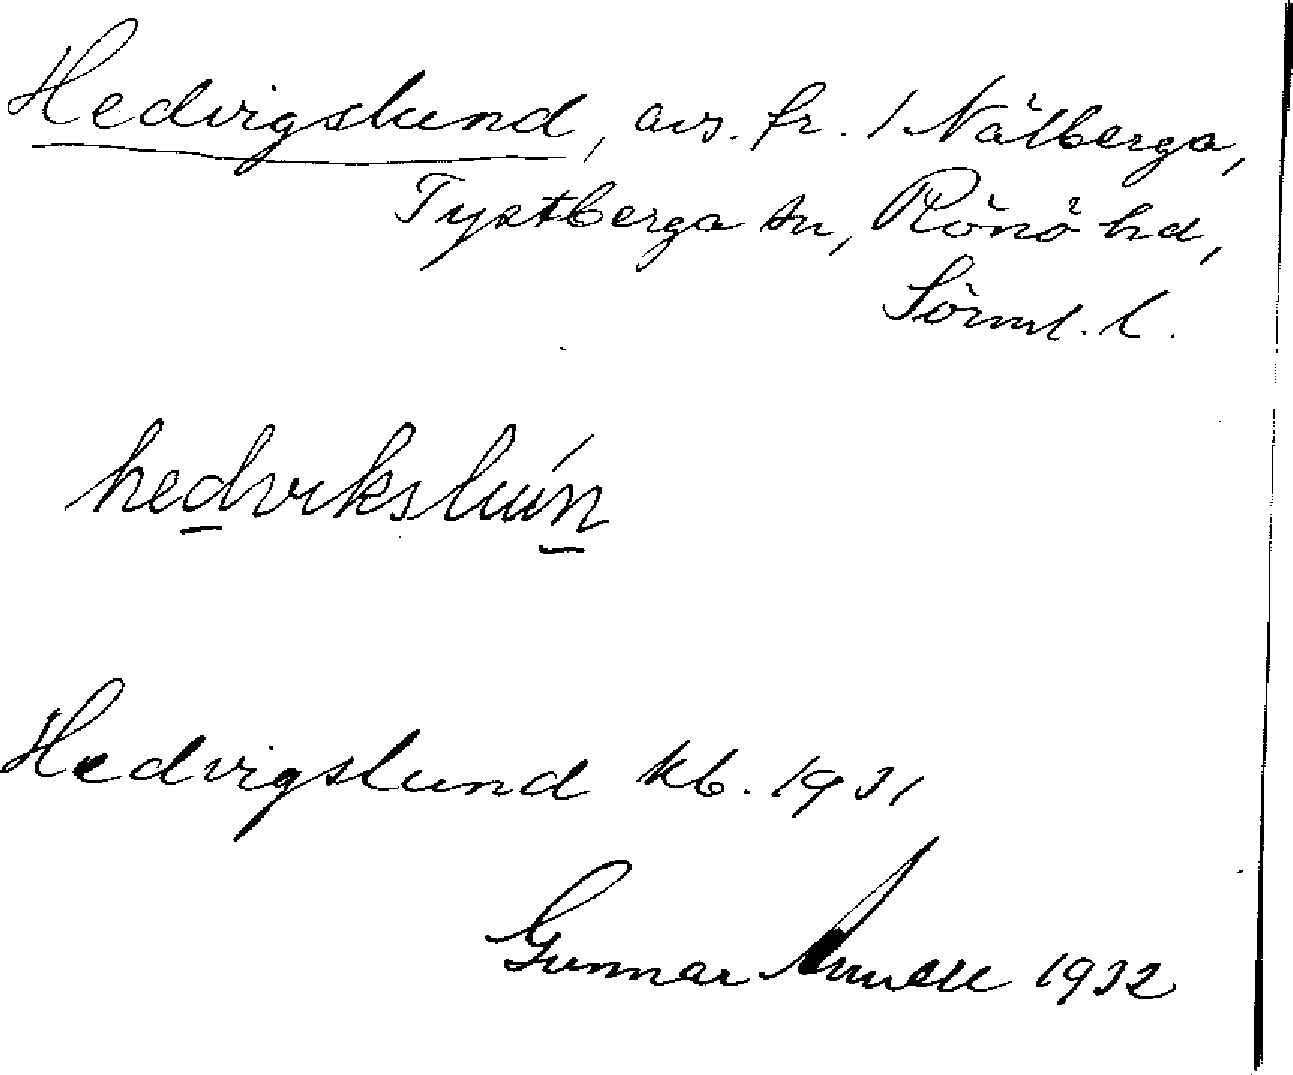 Hedvigslund, avs. fr. 1 Nälberga,
Tystberga sn, Rönö hd,
Sörml. l.
hedvikslún
Hedvigslund kb. 1931
Gunnar 1932